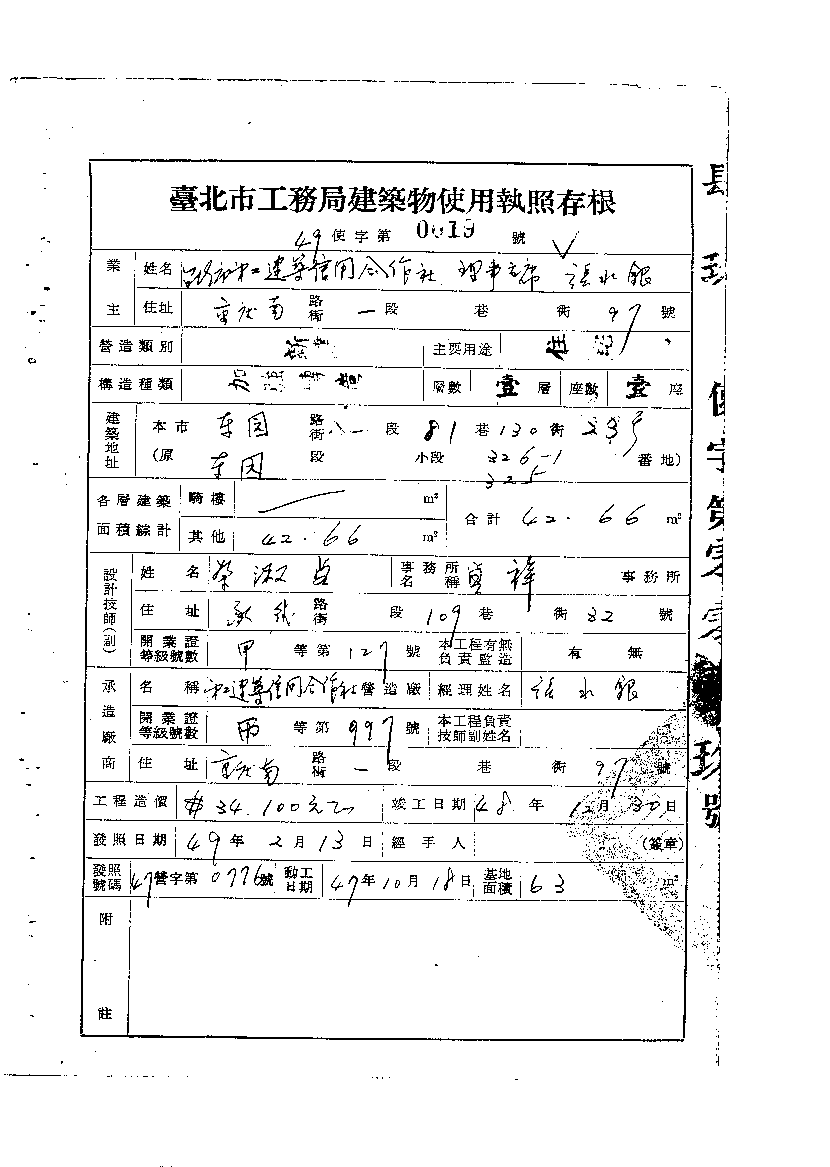 臺北市工務局建築物使用執照存根
49使字第 0019 號
業主 姓名 建築信用合作社 理事主席 張水銀
住址 重慶南 路街 一段 巷 衖 97 號
營造類別 新 主要用途 住
構造種類 加強磚造 層數 壹 層 座數 壹 座
建築地址 本市 東園 路街 段 81 巷 130 衖 23号
(原 東園 段 小段 326-1 325 番地)
各層建築面積綜計 騎樓 m² 合計 42.66 m²
其他 42.66 m²
設計技師(副) 姓名 事務所名稱 事務所
住址 承德 路街 段 109 巷 衖 32 號
開業證等級號數 甲 等第 127 號 本工程有無負責監造 有 無
承造廠商 名稱 建築信用合作社營造廠 經理姓名 張水銀
開業證等級號數 丙 等第 997 號 本工程負責技師副姓名
住址 重慶南 路街 一段 巷 衖 97 號
工程造價 34.100元 竣工日期 48 年 12月 30日
發照日期 49 年 2 月 13 日 經手人 (簽章)
發照號碼 47營字第 0776號 動工日期 47年10月18日 基地面積 63 m²
附註
使字第零零 玖號